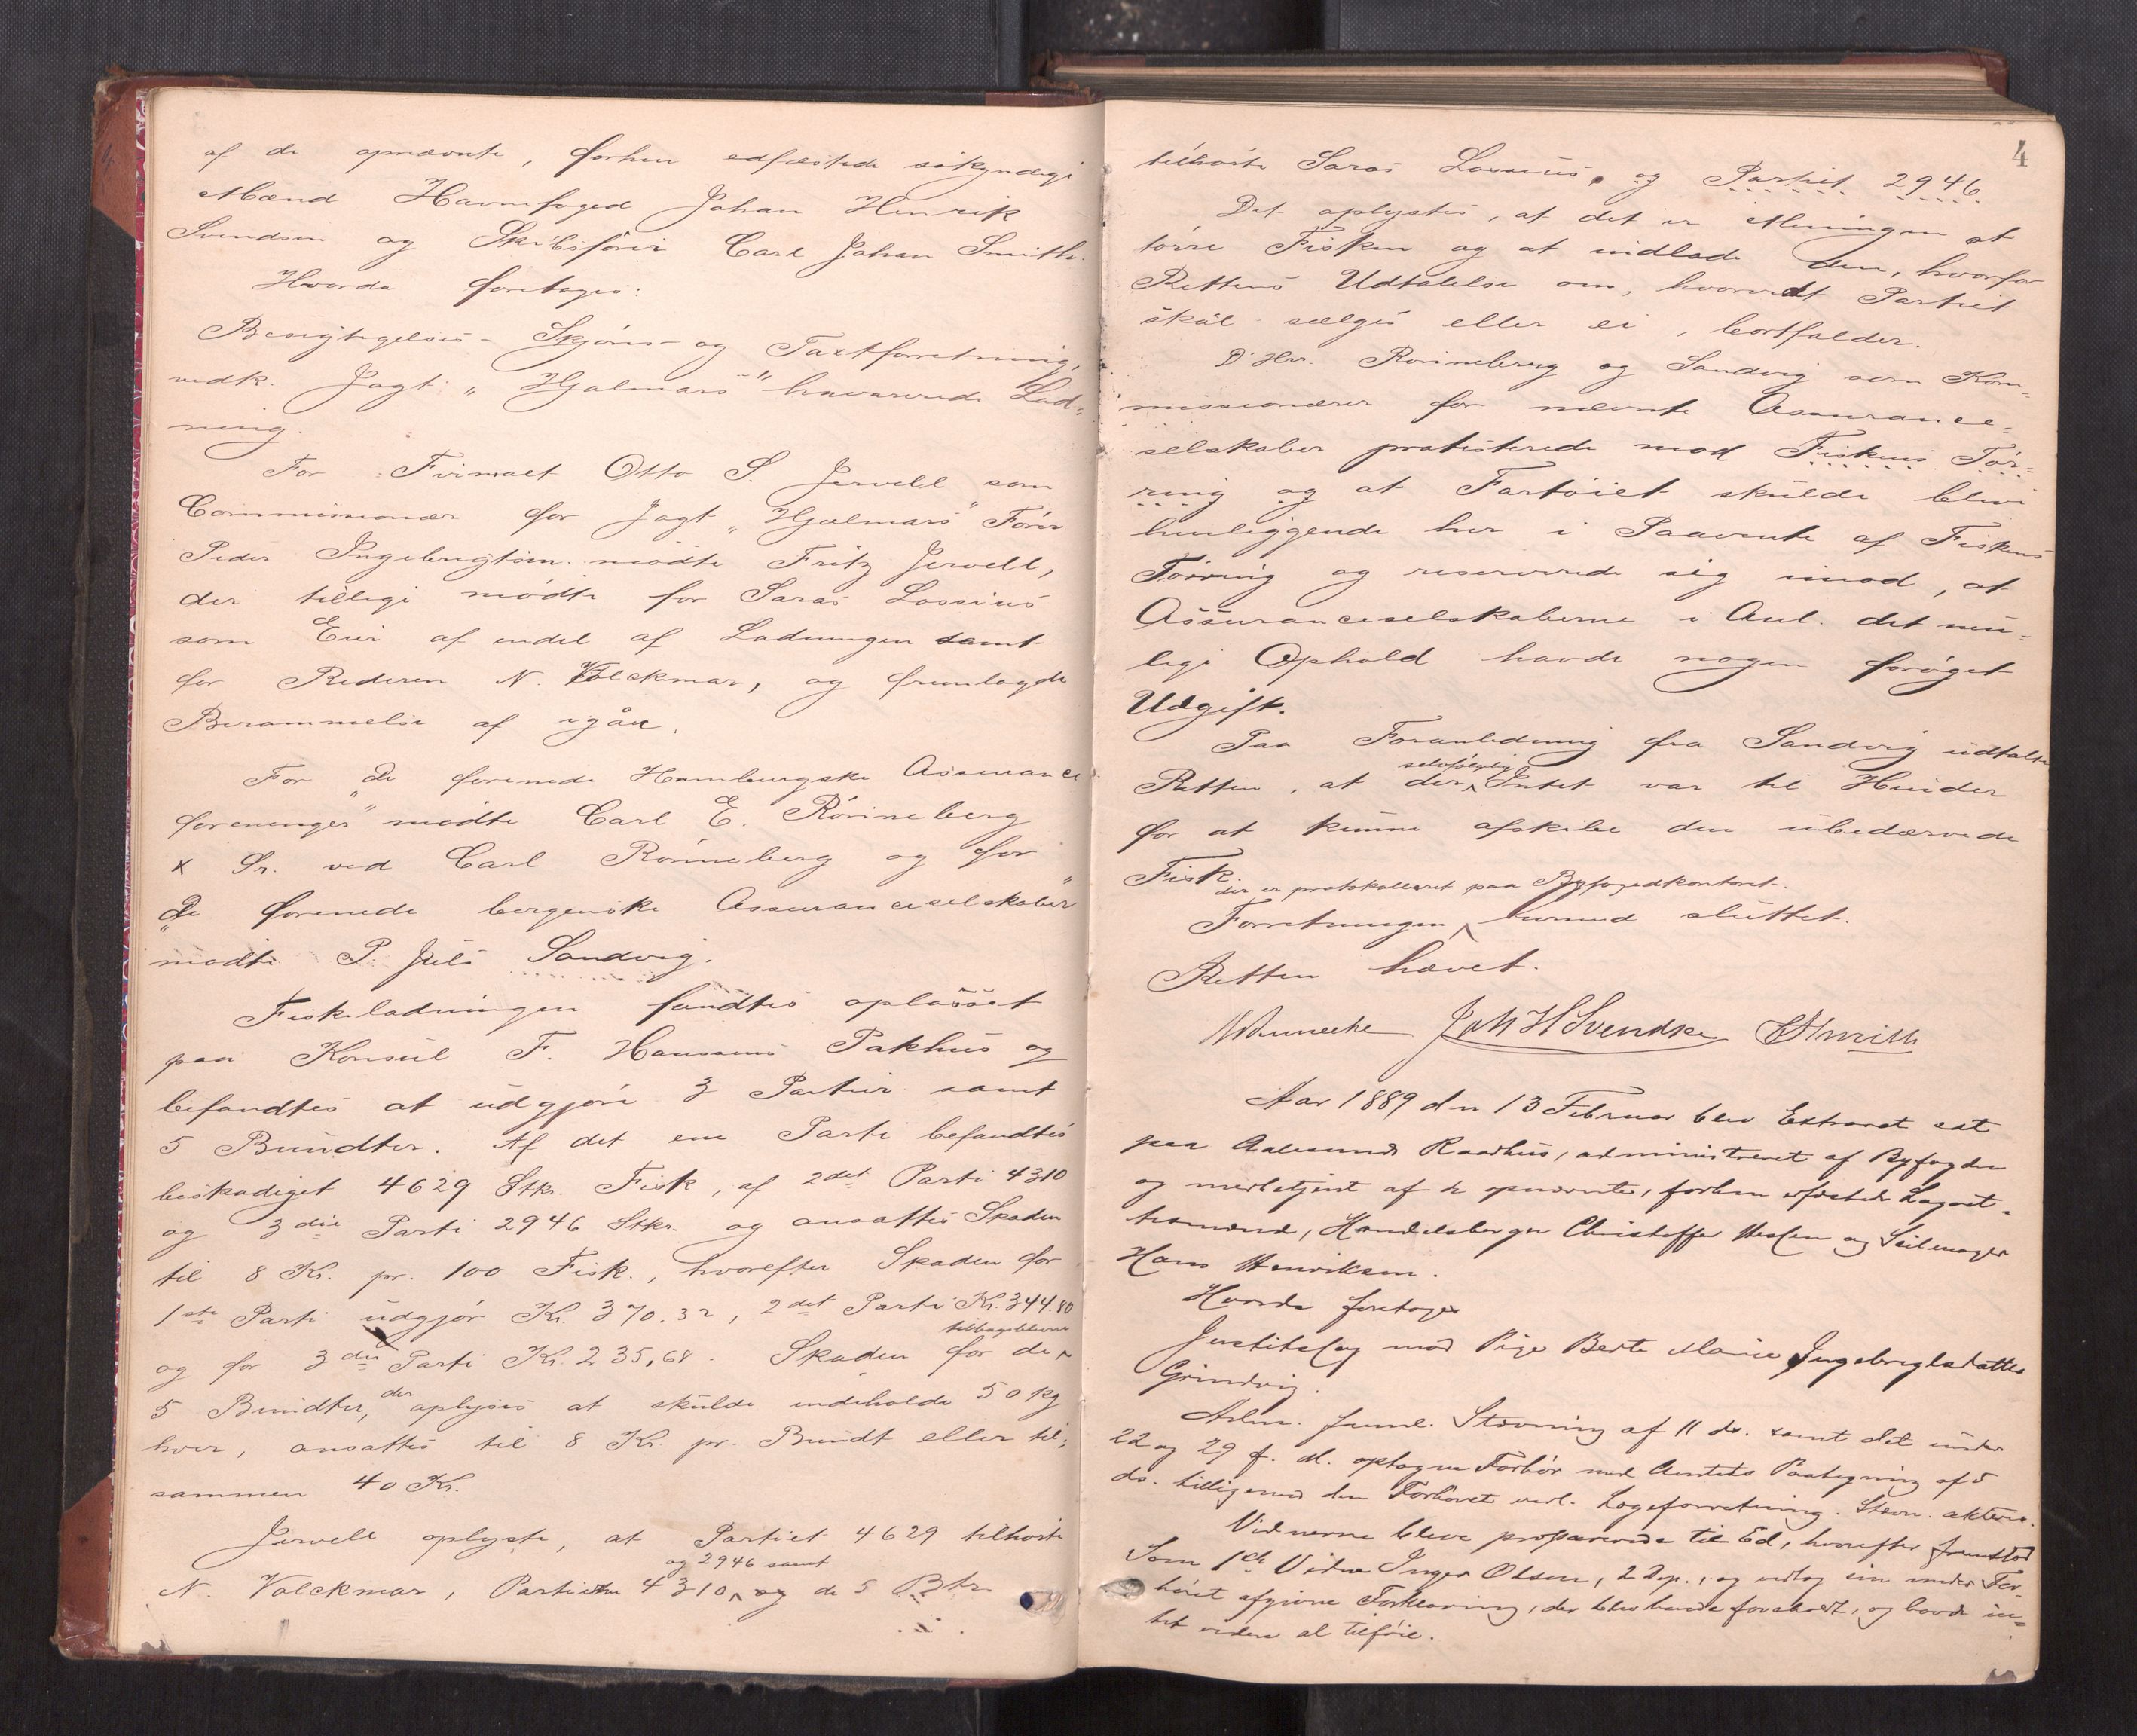 af de opnævnte, forhen edfæstede søkyndige
Mænd Havnefoged Johan Henrik
Svendsen og Skibsfører Carl Johan Smith.
Hvorda foretoges:
Besigtigelses- Skjøns- og Taxtforretning,
vedk. Jagt "Hjalmars" havarerede Lad-
ning.
For Firmaet Otto S. Jervell som
Commissionær for Jagt "Hjalmars" Fører
Peder Ingebrigtsen mødte Fritz Jervell,
der tillige mødte for Saras Lossius
som Eier af endel af Ladningen samt
for Rederen N. Volckmar, og fremlagde
Berammelse af igår.
For "De forenede Hamburgske Assurance
foreninger" mødte Carl E. Rönneberg
x Sr. ved Carl Rönneberg og for
"De forenede bergenske Assuranceselskaber"
mødte P. Juls Sandvig.
Fiskeladningen fandtes oplosset
paa Konsul F. Hansens Pakhus og
befandtes at udgjøre 3 Partier samt
5 Bundter. Af det ene Parti befandtes
beskadiget 4629 Stkr. Fisk, af 2det Parti 4310
og 3die Parti 2946 Stkr. og ansattes Skaden
til 8 Kr. pr. 100 Fisk., hvorefter Skaden for
1ste Parti udgjør Kr. 370.32, 2det Parti Kr. 344.80
og for 3die Parti Kr. 235,68. Skaden for de tilbageblevne
5 Bundter, der oplyses at skulde indeholde 50 kg
hver, ansattes til 8 Kr. pr. Bundt eller til-
sammen 40 Kr.
Jervell oplyste, at Partiet 4629 tilhørte
og 2946 samt
N. Volckmar, Partierne 4310 og de 5 Btr.
4
tilhørte Saras Lossius, og Partiet 2946.
Det oplystes, at det er Meningen at
tørre Fisken og at indlade den, hvorfor
Rettens Udtalelse om, hvorvidt Partiet
skal sælges eller ei, bortfalder.
D'Hrr. Rönneberg og Sandvig som Kom-
missionærer for nævnte Assurance-
selskaber protesterede mod Fiskens Tør-
ring og at Fartøiet skulde blive
henliggende her i Paavente af Fiskens
Tørring og reserverede sig imod, at
Assuranceselskaberne i Anl. det mu-
lige Ophold havde nogen forøget
Udgift.
Paa Foranledning fra Sandvig udtalte
Retten, at der selvfølgelig Intet var til Hinder
for at kunne afskibe den ubedærvede
Fisk.
der er protokolleret paa Byfogedkontoret.
Forretningen hermed sluttet.
Retten hævet.
Joh H Svendsen CSmith
Aar 1889 den 13 Februar blev Extraret sat
paa Aalesunds Raadhus, administreret af Byfogden
og medbetjent af de opnævnte, forhen edfæstede Lagret-
temænd, Handelsborger Christoffer and Seilmager
Hans Henriksen.
Hvorda foretoges
Justitssag mod Pige Berte Marie Ingebrigtsdatter
Grindvig.
Aktor. freml. Stevning af 11 ds. samt det under
22 og 29 f. M. optagne Forhør med Amtets Paategning af 5
ds. tilligemed den Forhøret vedl. Lægeforretning. Stevn. akteres.
Vidnerne bleve præparerede til Ed, hvorefter fremstod
Som 1ste Vidne Inger Olsen, 2 Dep., og vedtog sin under For-
høret afgivne Forklaring, der blev hende foreholdt, og havde in-
tet videre at tilføie.